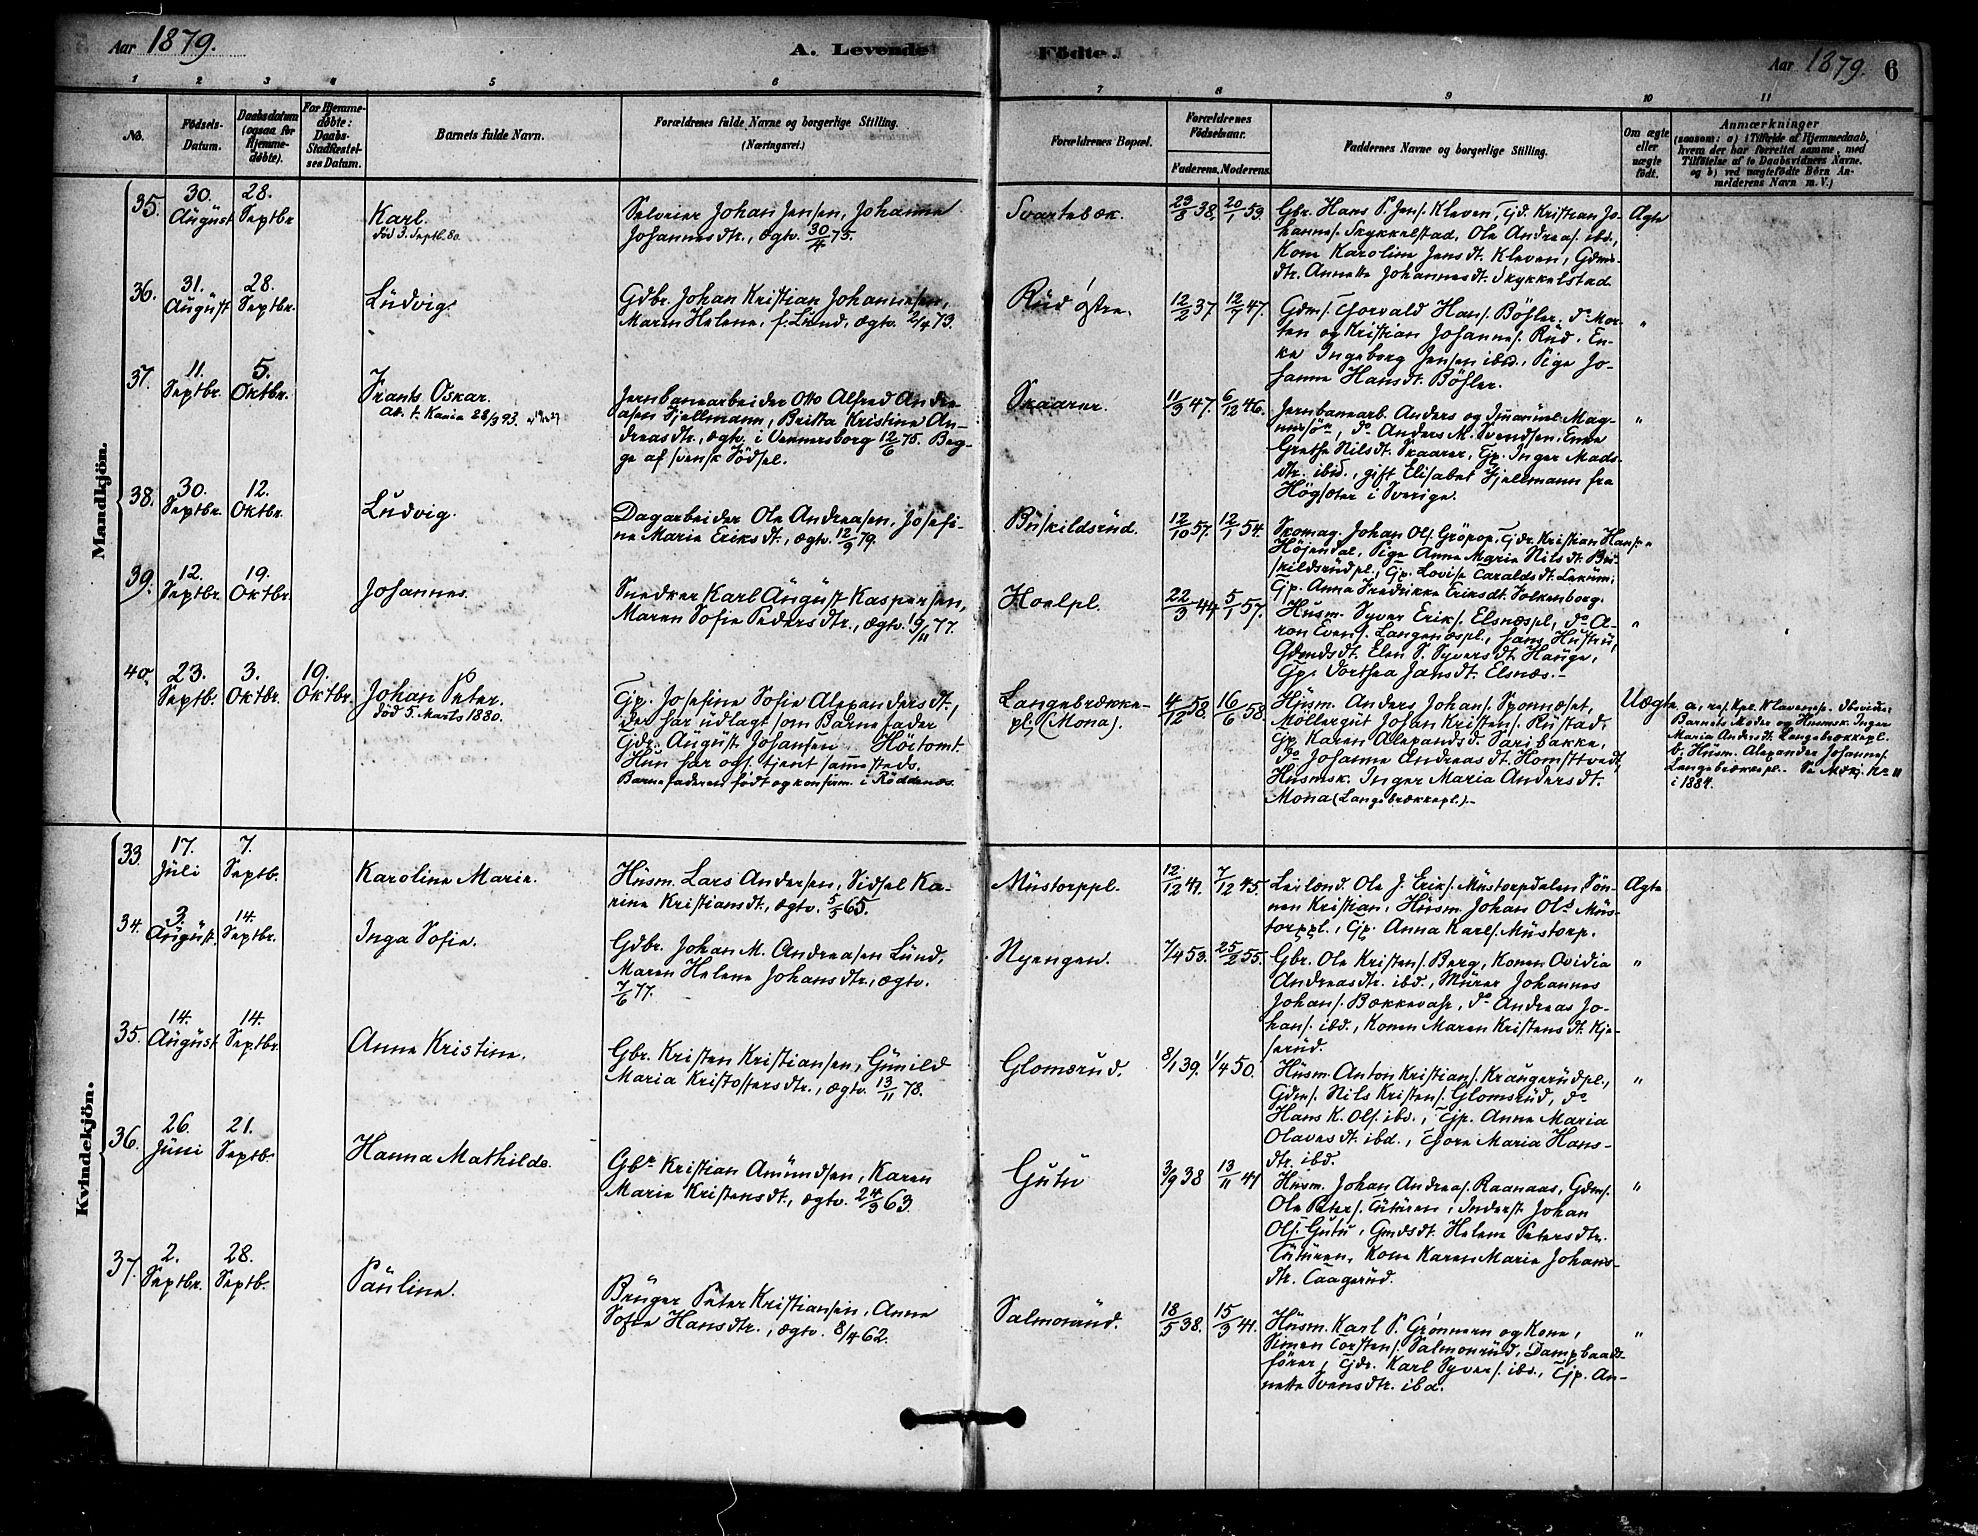 Aar 1879.
A. Levende
Födte.
Aar 1879. 6
1 2 3 4 5 6 7 8 9 10 11
No.
Födsels-
Datum.
Daabsdatum
(ogsaa for
Hjemme-
døbte).
For Hjemme-
døbte:
Daabs-
Stadfæstel-
ses Datum.
Barnets fulde Navn.
Forældrenes fulde Navne og borgerlige Stilling.
(Næringsvei.)
Forældrenes Bopæl.
Forældrenes
Födselsaar.
Faderens. Moderens.
Faddernes Navne og borgerlige Stilling.
Om ægte
eller
uægte
födt.
Anmærkninger
(saasom: a) i Tilfælde af Hjemmedaab,
hvem der har forrettet samme, med
Tilföielse af to Daabsvidners Navne.
og b) ved uægtefödte Börn An-
melderens Navn m. V.)
Mandkjön.
35.
30.
August
28.
Septbr
Karl.
död 3. Septb. 80.
Selveier Johan Jensen, Johanne
Johannesdtr., ægtv. 30/4 75.
Svartebæk.
23/8 38. 20/1 53.
Gbr. Hans P. Jens. Kleven, Gdr. Kristian Jo-
hannes. Skykkelstad, Ole Andreas. ibd.,
Kone Karoline Jensdt. Kleven, Gdm-
dtr. Annette Johannesdt. Skykkelstad
Ægte
36.
31.
August
28.
Septbr.
Ludvig.
Gdbr. Johan Kristian Johannesen,
Maren Helene, f. Lund, ægtv. 2/4 73.
Rud östre.
12/2 37. 12/7 47.
Gdms. Thorvald Hans. Böhler, do Mor-
ten og Kristian Johannes. Rud. En-
ke Ingeborg Jensen ibd., Pige Jo-
hanne Hansdt. Böhler.
"
37.
11.
Septbr.
5.
Oktbr.
Frants Oskar.
Jernbanearbeider Otto Alfred Andre-
asen Fjellmann, Britta Kristine An-
dreasdtr., ægtv. i Vennersborg 12/6 75. Beg-
ge af svensk Födsel.
Skaarer.
11/3 47. 6/12 46.
Jernbanearb. Anders og Imanuel Mag-
nussön, do Anders M. Svendsen, Enke
Grethe Nilsdt. Skaarer, Gp. Inger Mads-
dtr. ibd., gift Elisabet Fjellmann fra
Högsæter i Sverige.
"
38.
30.
Septbr.
12.
Oktbr.
Ludvig.
Dagarbeider Ole Andreasen, Josefi-
ne Marie Eriksdt., ægtv. 12/9 79.
Buskildsrud.
12/10 57. 12/1 54.
Skomag. Johan Ols. Gröpop, Gdr. Kristian Hans.
Höjendal, Pige Anne Marie Nilsdt. Bu-
skildsrudpl., Gp. Lovise Taraldsdt. Lekum,
Gp. Anna Fredrikke Eriksdt. Folkenborg.
"
39.
12.
Septbr.
19.
Oktbr.
Johannes.
Snedker Karl August Kaspersen,
Maren Sofie Pedersdtr., ægtv. 19/11 77.
Hoelpl.
22/3 44 5/1 57.
Husm. Syver Eriks. Elsnæspl., do A-
ron Evens. Langenæspl., hans Hustru,
Gdmdsdt. Elen S. Syversdt. Hauge,
Gp. Dorthea Jansdt. Elsnæs.
"
40.
23.
Septb.
3.
Oktbr.
19.
Oktbr.
Johan Peter.
död 5. Marts 1880.
Gp. Josefine Sofie Alexandersdt.,
der har udlagt som Barnefader
Gdg. August Johansen Höctomt.
Hun har ogs. tjent sammesteds.
Barnefaderen födt og konfirm. i Röddenæs.
Langebrække-
pl. (Mona).
4/12 58. 16/6 58.
Husm. Anders Johans. Sponnæset,
Möllergut Johan Kristens. Rustad,
Gp. Karen Alexandsd. Saribakke,
do Johanne Andreasdt. Homstvedt,
Husmsk. Inger Maria Andersdt.
Mona (Langebrækkepl.)
Uægte
Barnets Moder og Husmsk. Inger
Maria Andersdt. Langebrækkepl.
b, Husm. Alexander Johannes.
Langebrækkepl. Se Mdkj. No 11
i 1884.
Kvindekjön.
33.
17.
Juli
7.
Septb.
Karoline Marie.
Husm. Lars Andersen, Sidsel Ka-
rine Kristiansdt., ægtv. 5/3 65.
Mustorppl.
12/12 41. 7/12 45.
Leilænd. Ole J. Eriks. Mustorpdalen, Sön-
nen Kristian, Husm. Johan Ols. Mus-
torppl., Gp. Anna Karls. Mustorp.
Ægte
34.
3.
August.
14.
Septbr.
Inga Sofie.
Gdbr. Johan M. Andreasen Lund,
Maren Helene Johansdtr., ægtv.
7/6 77.
Nyengen.
7/4 53. 25/2 55.
Gbr. Ole Kristens. Berg, Konen Ovidia
Andreasdtr. ibd., Murer Johannes
Johans. Bækkevahr, do Andreas Jo-
hans. ibd., Konen Maren Kristensdt. Kje-
serud.
"
35.
14.
August
14.
Septbr.
Anne Kristine.
Gbr. Kristen Kristiansen, Gunild
Maria Kristoffersdtr., ægtv. 13/11 78.
Glomsrud.
8/1 39. 1/4 50.
Husm. Anton Kristians. Kraugerudpl.,
Gdms. Nils Kristens. Glomsrud, do
Hans K. Ols. ibd., Gp. Anne Maria
Olavesdt. ibd., Thore Maria Hans-
dtr. ibd.
"
36.
26.
Juni
21.
Septb.
Hanna Mathilde.
Gbr. Kristian Amundsen, Karen
Marie Kristensdt., ægtv. 24/3 63.
Gutu
3/9 38 13/11 41
Husm. Johan Andreas. Raanaas, Gdms.
Ole Peters. Tuturen, Inderst Johan
Ols. Gutu, Gmdsdt. Helene Petersdtr.
Tuturen, Kone Karen Marie Johans-
dtr. Taagerud.
"
37.
2.
Septbr.
28.
Septb.
Pauline.
Bruger Peter Kristiansen, Anne
Sofie Hansdtr., ægtv. 8/4 62.
Salmonrud.
18/5 38. 15/3 41.
Husm. Karl P. Grönnern og Kone,
Simen Torstens. Salmonrud, Dampbaads-
förer, Gdr. Karl Syvers. ibd., Gp. An-
nette Svensdtr. ibd.
"